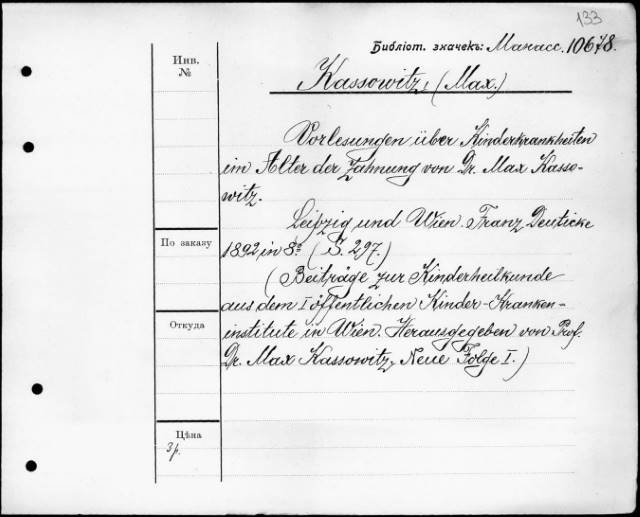 133
Библіот. значекъ: Манасс. 10678.
Инв.
№
Kassowitz, (Max.)
Vorlesungen über Kinderkrankheiten
im Alter der Zahnung von Dr. Max Kasso-
witz.
Leibzig und Wien. Franz Deuticke
По заказу
1892 in 8º (S. 297.)
(Beiträge zur Kinderheilkunde
aus dem I öffentlichen Kinder-Kranken-
Откуда
institute in Wien. Herausgegeben von Prof.
Dr. Max Kassowitz, Neue Folge I.)
Цѣна
3 р.